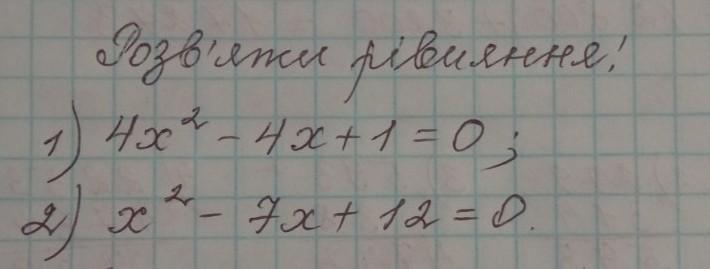 Розв'яжи рівняння!
1) 4x² - 4x + 1 = 0;
2) x² - 7x + 12 = 0.